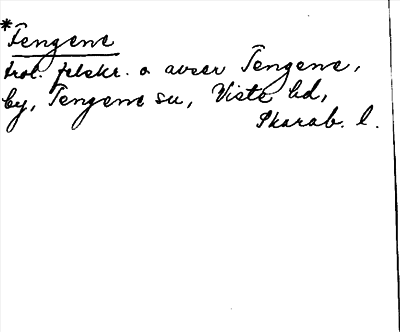 *Fengene
trol. felskr. o avser Tengene,
by, Tengene su, Viste hd,
Skarab. l.